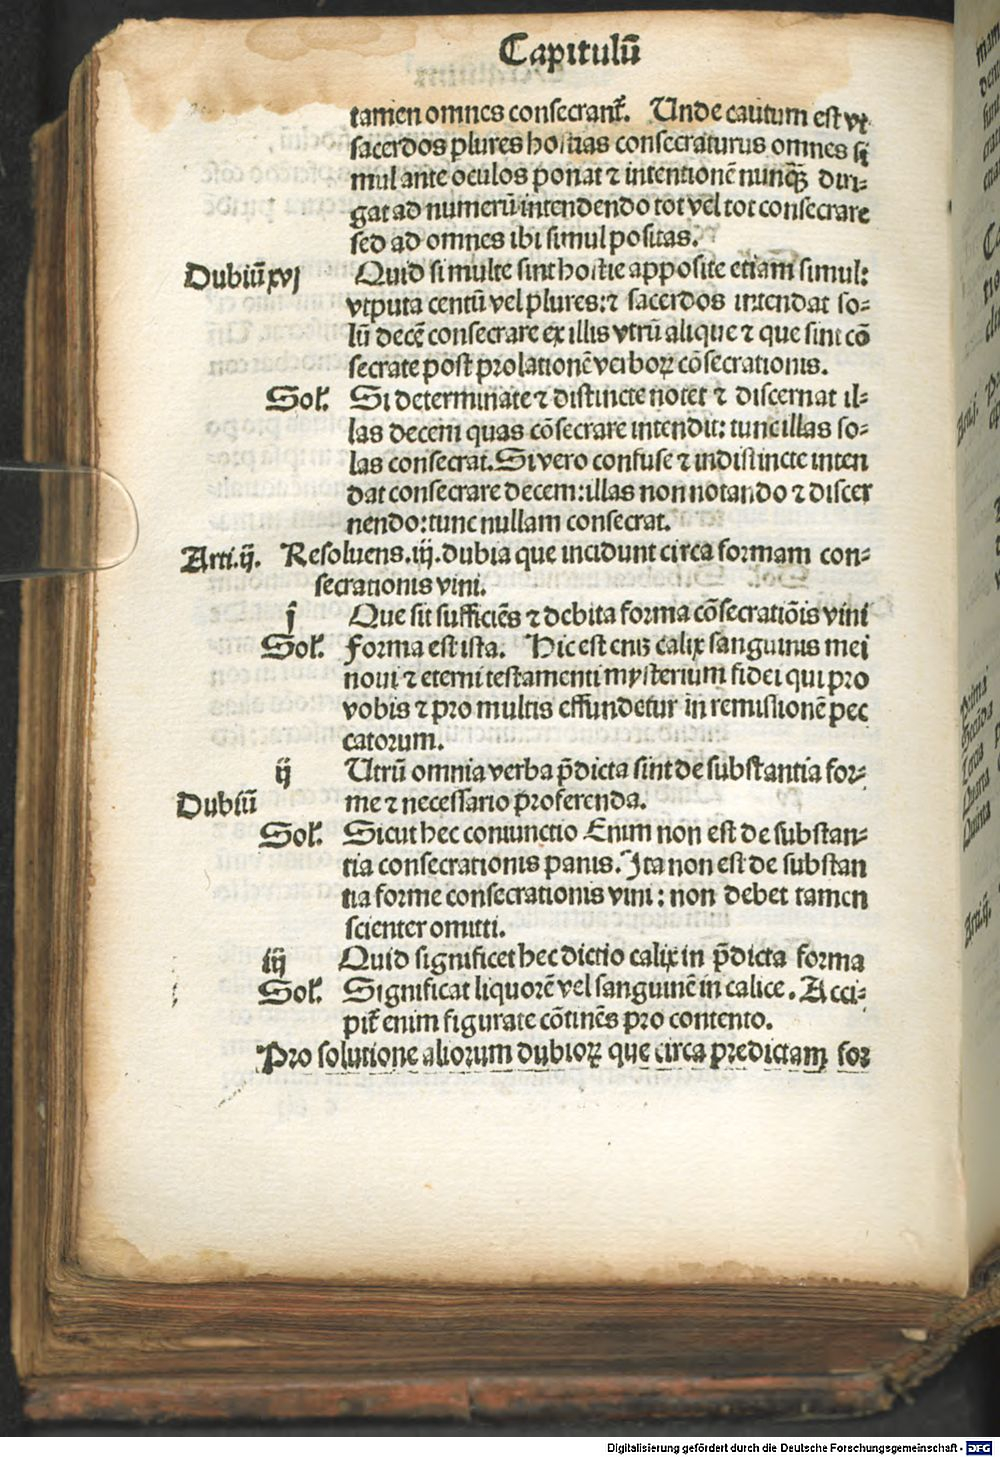 Capitulū
tamen omnes consecrant̃. Unde cautum est vt
sacerdos plures hostias consecraturus omnes si
mul ante oculos ponat ⁊ intentionē nunqꝫ diri-
gat ad numerū intendendo tot vel tot consecrare
sed ad omnes ibi simul positas.
Dubiū xvj Quid si multe sint hostie apposite etiam simul:
vtputa centū vel plures: ⁊ sacerdos intendat so-
lū decē consecrare ex illis vtrū alique ⁊ que sint cō
secrate post prolationē verboꝝ cōsecrationis.
Sol̃. Si determinate ⁊ distincte notet ⁊ discernat il-
las decem quas cōsecrare intendit: tunc illas so-
las consecrat. Si vero confuse ⁊ indistincte inten
dat consecrare decem: illas non notando ⁊ discer
nendo: tunc nullam consecrat.
Arti.ij. Resoluens .iij. dubia que incidunt circa formam con-
secrationis vini.
j Que sit sufficiēs ⁊ debita forma cōsecratiōis vini
Sol̃. Forma est ista. Hic est eni3 calix sanguinis mei
noui ⁊ eterni testamenti mysterium fidei qui pro
vobis ⁊ pro multis effundetur in remissionē pec
catorum.
ij Utrū omnia verba p̄dicta sint de substantia for-
Dubiū me ⁊ necessario proferenda.
Sol̃. Sicut hec coniunctio Enim non est de substan-
tia consecrationis panis. Ita non est de substan
tia forme consecrationis vini: non debet tamen
scienter omitti.
iij Quid significet hec dictio calix in p̄dicta forma
Sol̃. Significat liquorē vel sanguinē in calice. Acci-
pit̃ enim figurate cōtinēs pro contento.
Pro solutione aliorum dubioꝝ que circa predictam for
Digitalisierung gefördert durch die Deutsche Forschungsgemeinschaft - DFG